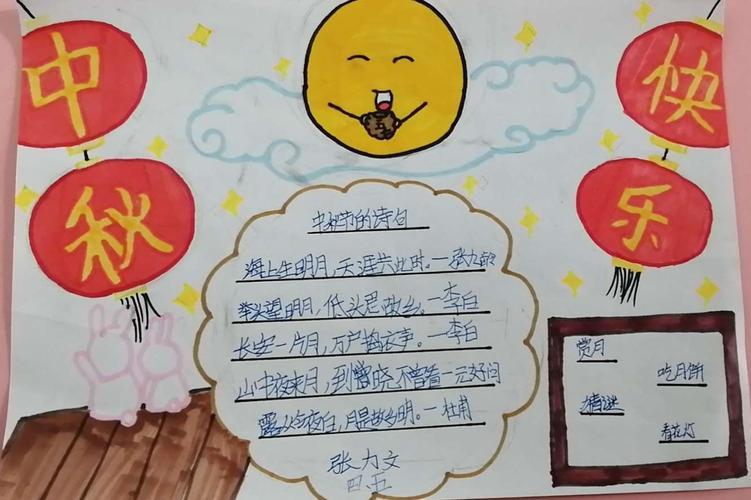 中
秋
快
乐
中秋节的诗句
海上生明月,天涯共此时.一张九龄
举头望明月,低头思故乡.一李白
长安一片月,万户捣衣声.一李白
山中夜来月,到晓不曾看一元好问
露从今夜白,月是故乡明.一杜甫
张力文
四.五
赏月
吃月饼
猜谜
看花灯